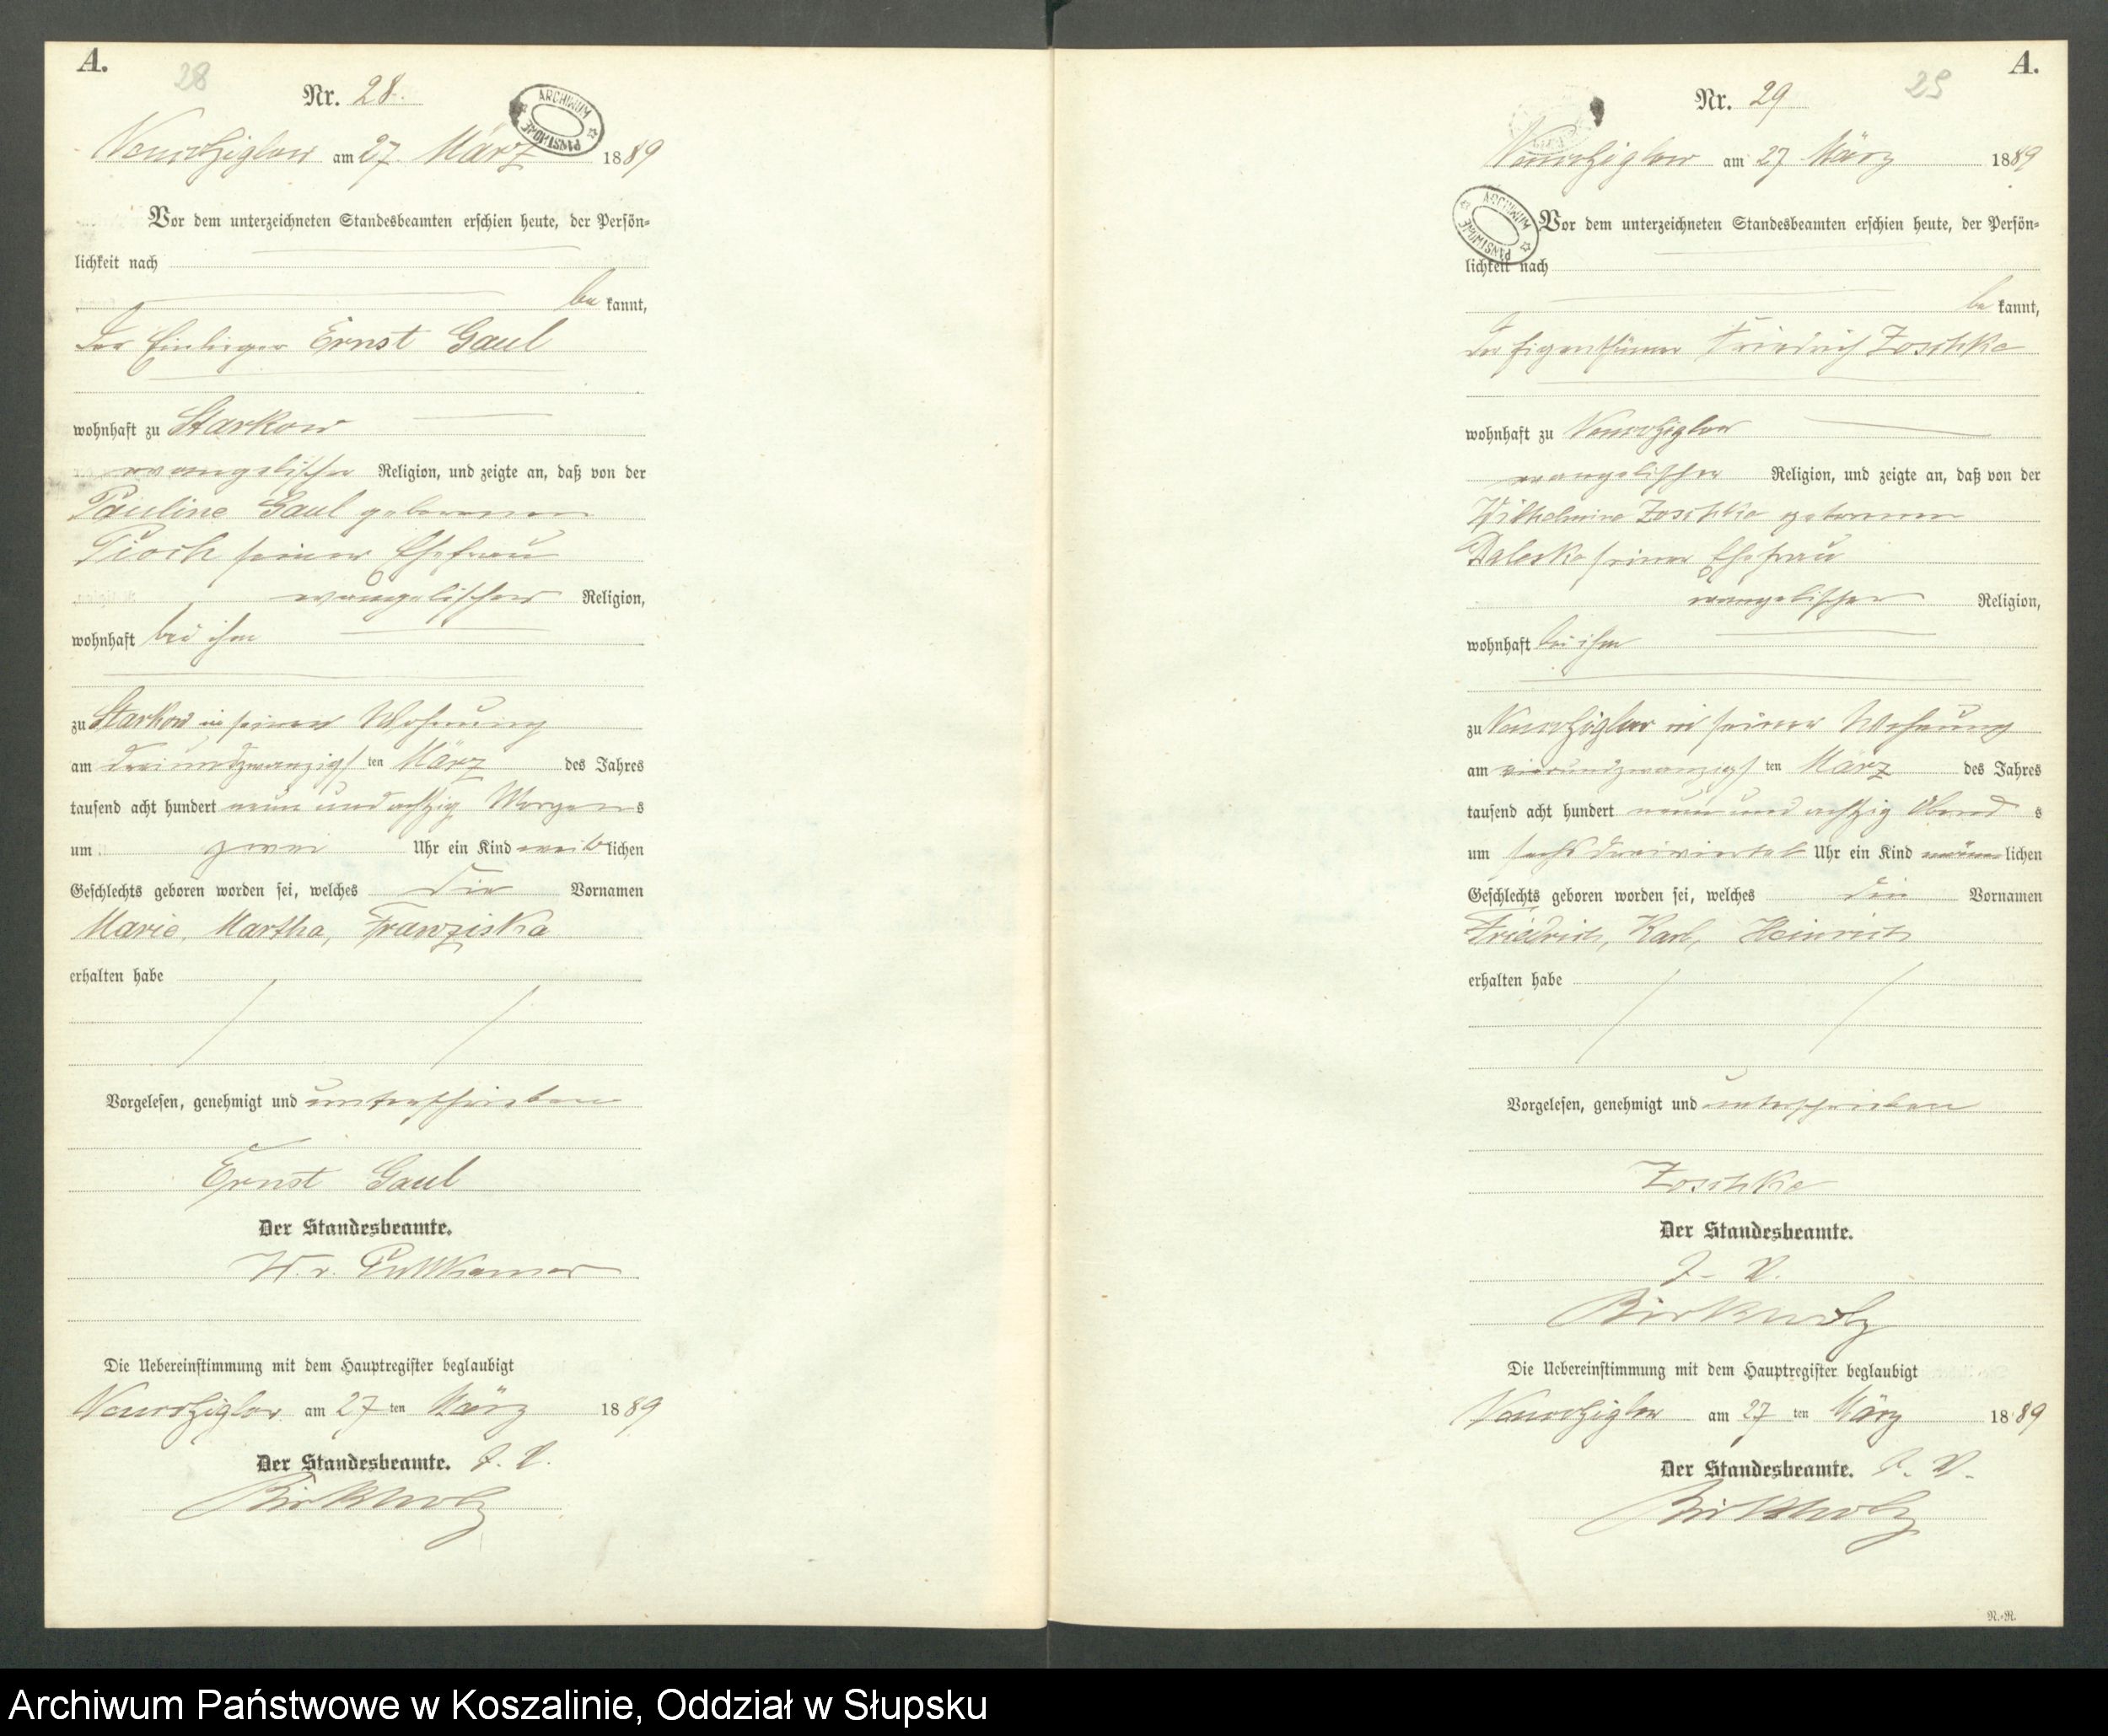 A.
28
Nr. 28.
ARCHIWUM PAŃSTWOWE
am 27. März 1889
Vor dem unterzeichneten Standesbeamten erschien heute, der Persön-
lichkeit nach
be kannt,
der Einlieger Ernst Gaul
wohnhaft zu Starkow
evangelischer Religion, und zeigte an, daß von der
Pauline Gaul geborenen
Pioch seiner Ehefrau
evangelischer Religion,
wohnhaft bei ihm
zu Starkow in seiner Wohnung
am dreiundzwanzigsten März des Jahres
tausend acht hundert neun und achtzig Morgens
um zwei Uhr ein Kind weiblichen
Geschlechts geboren worden sei, welches die Vornamen
Marie, Martha, Franziska
erhalten habe
Vorgelesen, genehmigt und unterschrieben
Ernst Gaul
Der Standesbeamte.
W. v. Puttkamer
Die Uebereinstimmung mit dem Hauptregister beglaubigt
am 27ten März 1889
Der Standesbeamte. J. V.
Birkholz
A.
29
Nr. 29
ARCHIWUM PAŃSTWOWE
am 27 März 1889
Vor dem unterzeichneten Standesbeamten erschien heute, der Persön-
lichkeit nach
be kannt,
der Eigenthümer Friedrich Zoschke
wohnhaft zu
evangelischer Religion, und zeigte an, daß von der
Wilhelmine Zoschke geborenen
Daleske seiner Ehefrau
evangelischer Religion,
wohnhaft bei ihm
zu in seiner Wohnung
am vierundzwanzigsten März des Jahres
tausend acht hundert neun und achtzig Abends
um sechs dreiviertel Uhr ein Kind männlichen
Geschlechts geboren worden sei, welches die Vornamen
Friedrich, Karl, Heinrich
erhalten habe
Vorgelesen, genehmigt und unterschrieben
Zoschke
Der Standesbeamte.
J. V.
Birkholz
Die Uebereinstimmung mit dem Hauptregister beglaubigt
am 27ten März 1889
Der Standesbeamte. J. V.
Birkholz
N.-R.
Archiwum Państwowe w Koszalinie, Oddział w Słupsku